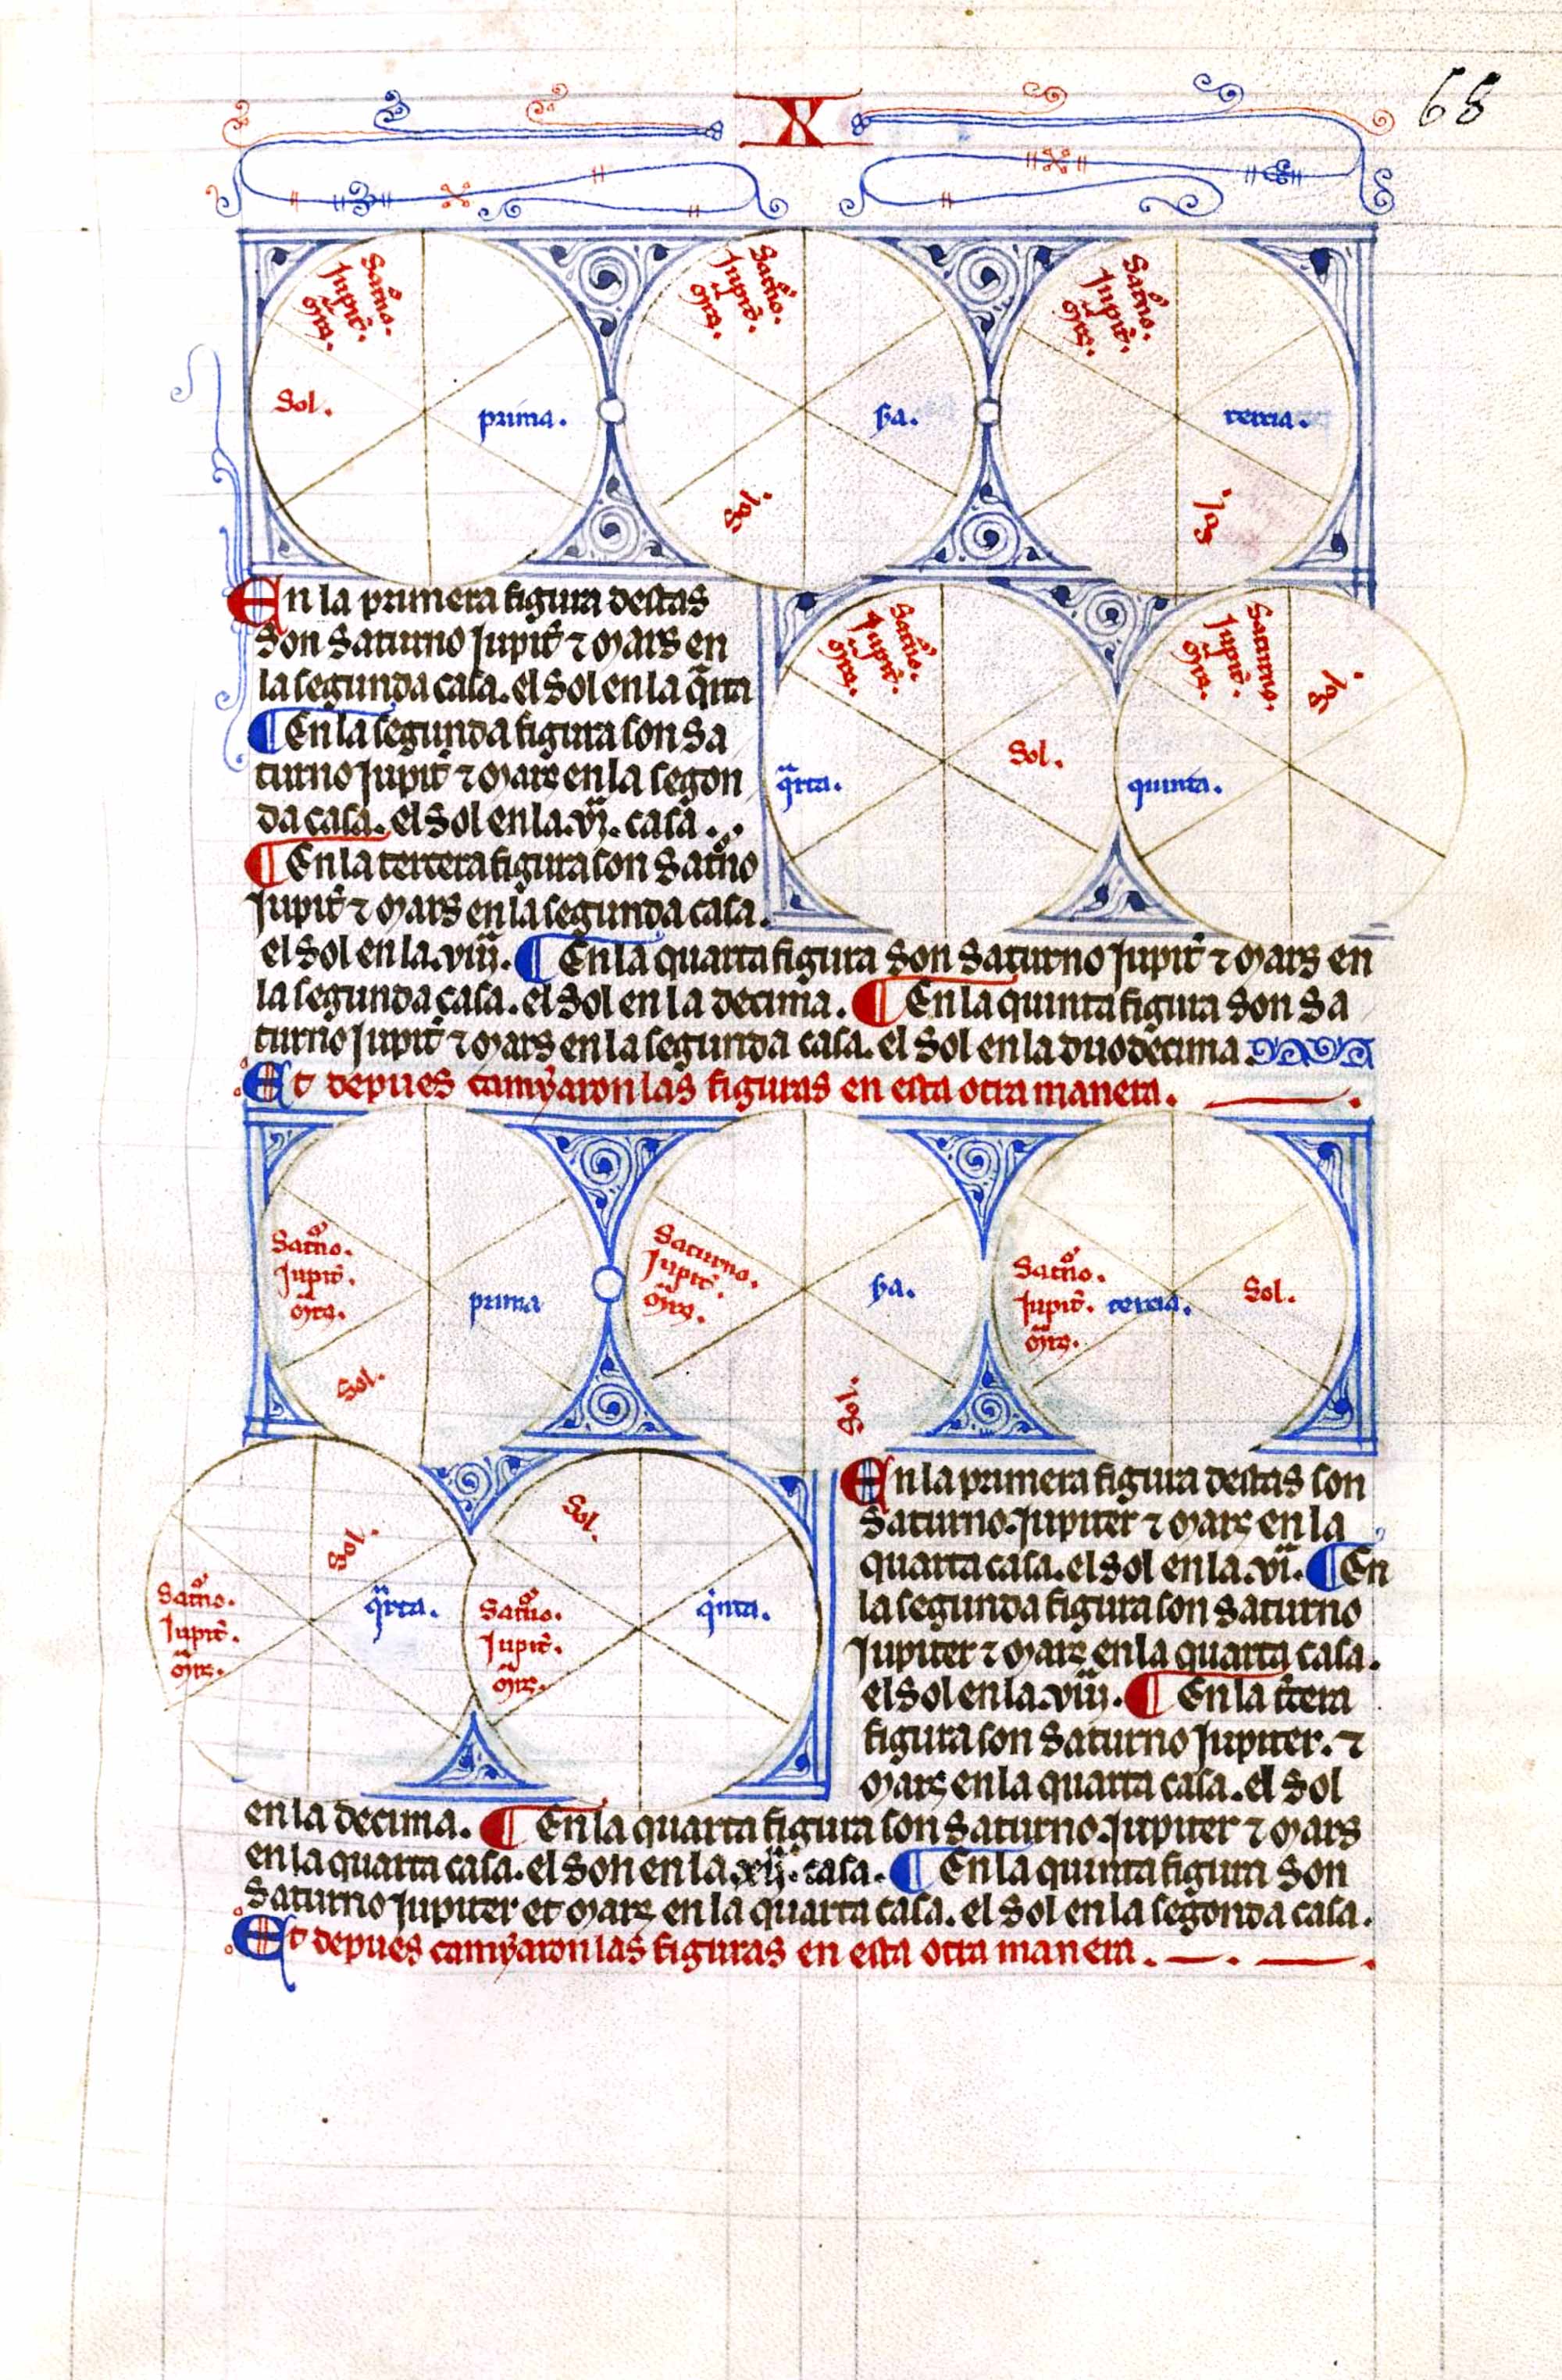 X
68
Satn̄o.
Jupit̄.
mr̄s.
Sol.
prima.
Satn̄o.
Jupit̄.
mr̄s.
Sol.
ẜa.
Satn̄o.
Jupit̄.
mr̄s.
Sol.
tercia.
En la primera figura destas
Son Saturno Jupit̄ ⁊ Mars en
la segunda casa. el Sol en la q̄rta
¶ En la segunda figura son Sa
turno Jupit̄ ⁊ Mars en la segon
da casa. el Sol en la .vj. casa.
¶ En la tercera figura son Satn̄o
Jupit̄ ⁊ Mars en la segunda casa.
el Sol en la .viij. ¶ En la quarta figura Son Saturno Jupit̄ ⁊ Mars en
la segunda casa. el Sol en la decima. ¶ En la quinta figura Son Sa
turno Jupit̄ ⁊ Mars en la segunda casa. el Sol en la duodecima.
Satn̄o.
Jupit̄.
mr̄s.
Sol.
q̄rta.
Saturno.
Jupit̄.
mr̄s.
Sol.
quinta.
Et depues camyaron las figuras en esta otra manera.
Satn̄o.
Jupit̄.
mr̄s.
Sol.
prima
Saturno.
Jupit̄.
mr̄s.
Sol.
ẜa.
Satn̄o.
Jupit̄.
mr̄s.
tercia.
Sol.
Satn̄o.
Jupit̄.
mr̄s.
Sol.
q̄rta.
Satn̄o.
Jupit̄.
mr̄s.
Sol.
q̇nta.
En la primera figura destas son
Saturno. Jupiter ⁊ Mars en la
quarta casa. el Sol en la .vi. ¶ En
la segunda figura son Saturno
Jupiter ⁊ Mars en la quarta casa.
el Sol en la .viij. ¶ En la t̄cera
figura son Saturno Jupiter. ⁊
Mars en la quarta casa. el Sol
en la decima. ¶ En la quarta figura son Saturno. Jupiter ⁊ Mars
en la quarta casa. el Sol en la .xij. casa. ¶ En la quinta figura Son
Saturno Jupiter et Mars en la quarta casa. el Sol en la segonda casa.
Et depues camyaron las figuras en esta otra manera.